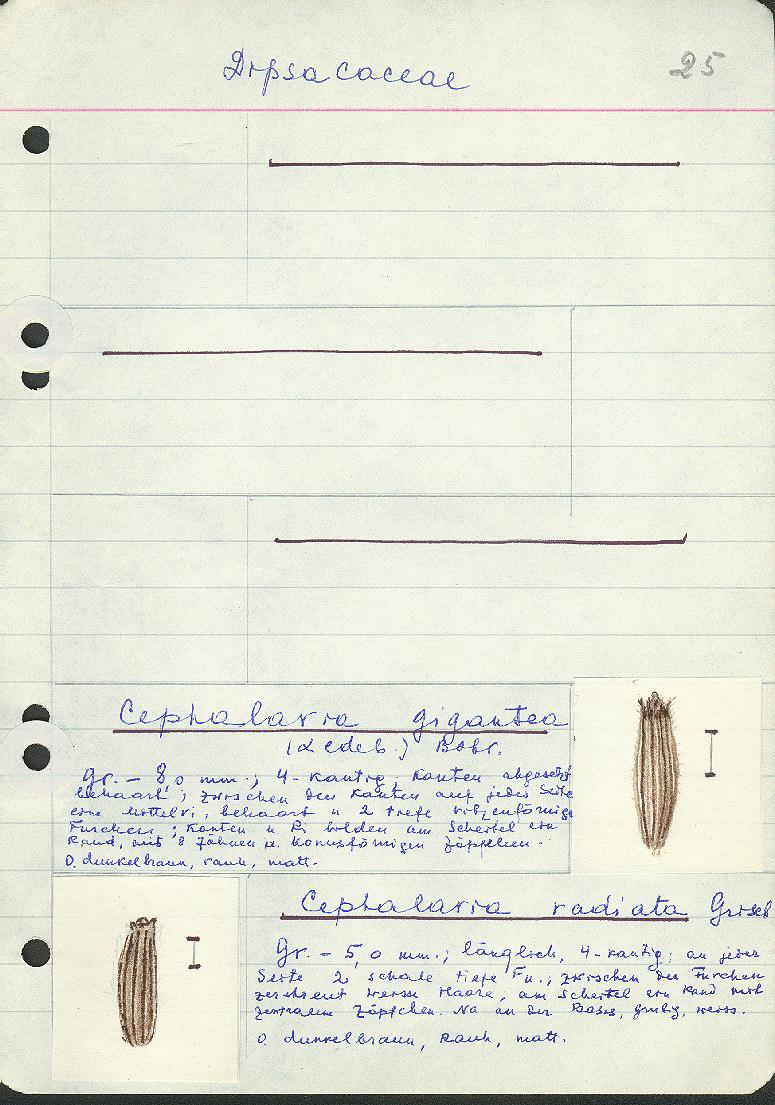 Dipsacaceae
25
Cephalaria gigantea
(Ledeb.) Bobr.
Gr. - 8,0 mm.; 4-kantig, Kanten abgesetzt
behaart; zwischen den Kanten auf jeder Seite
eine Mittelri, behaart u 2 tiefe ritzenförmige
Furchen; Kanten u Ri bilden am Scheitel ein
Rand, mit 8 Zähnen u. konusförmigen Zäpfchen.
O. dunkelbraun, rauh, matt.
Cephalaria radiata Griseb
Gr. - 5,0 mm.; länglich, 4-kantig; an jeder
Seite 2 tiefe Fu.; zwischen den Furchen
zerstreut weisse Haare, am Scheitel ein Rand mit
zentralem Zäpfchen. Na an der Basis, grubig, weiss.
O. dunkelbraun, rauh, matt.